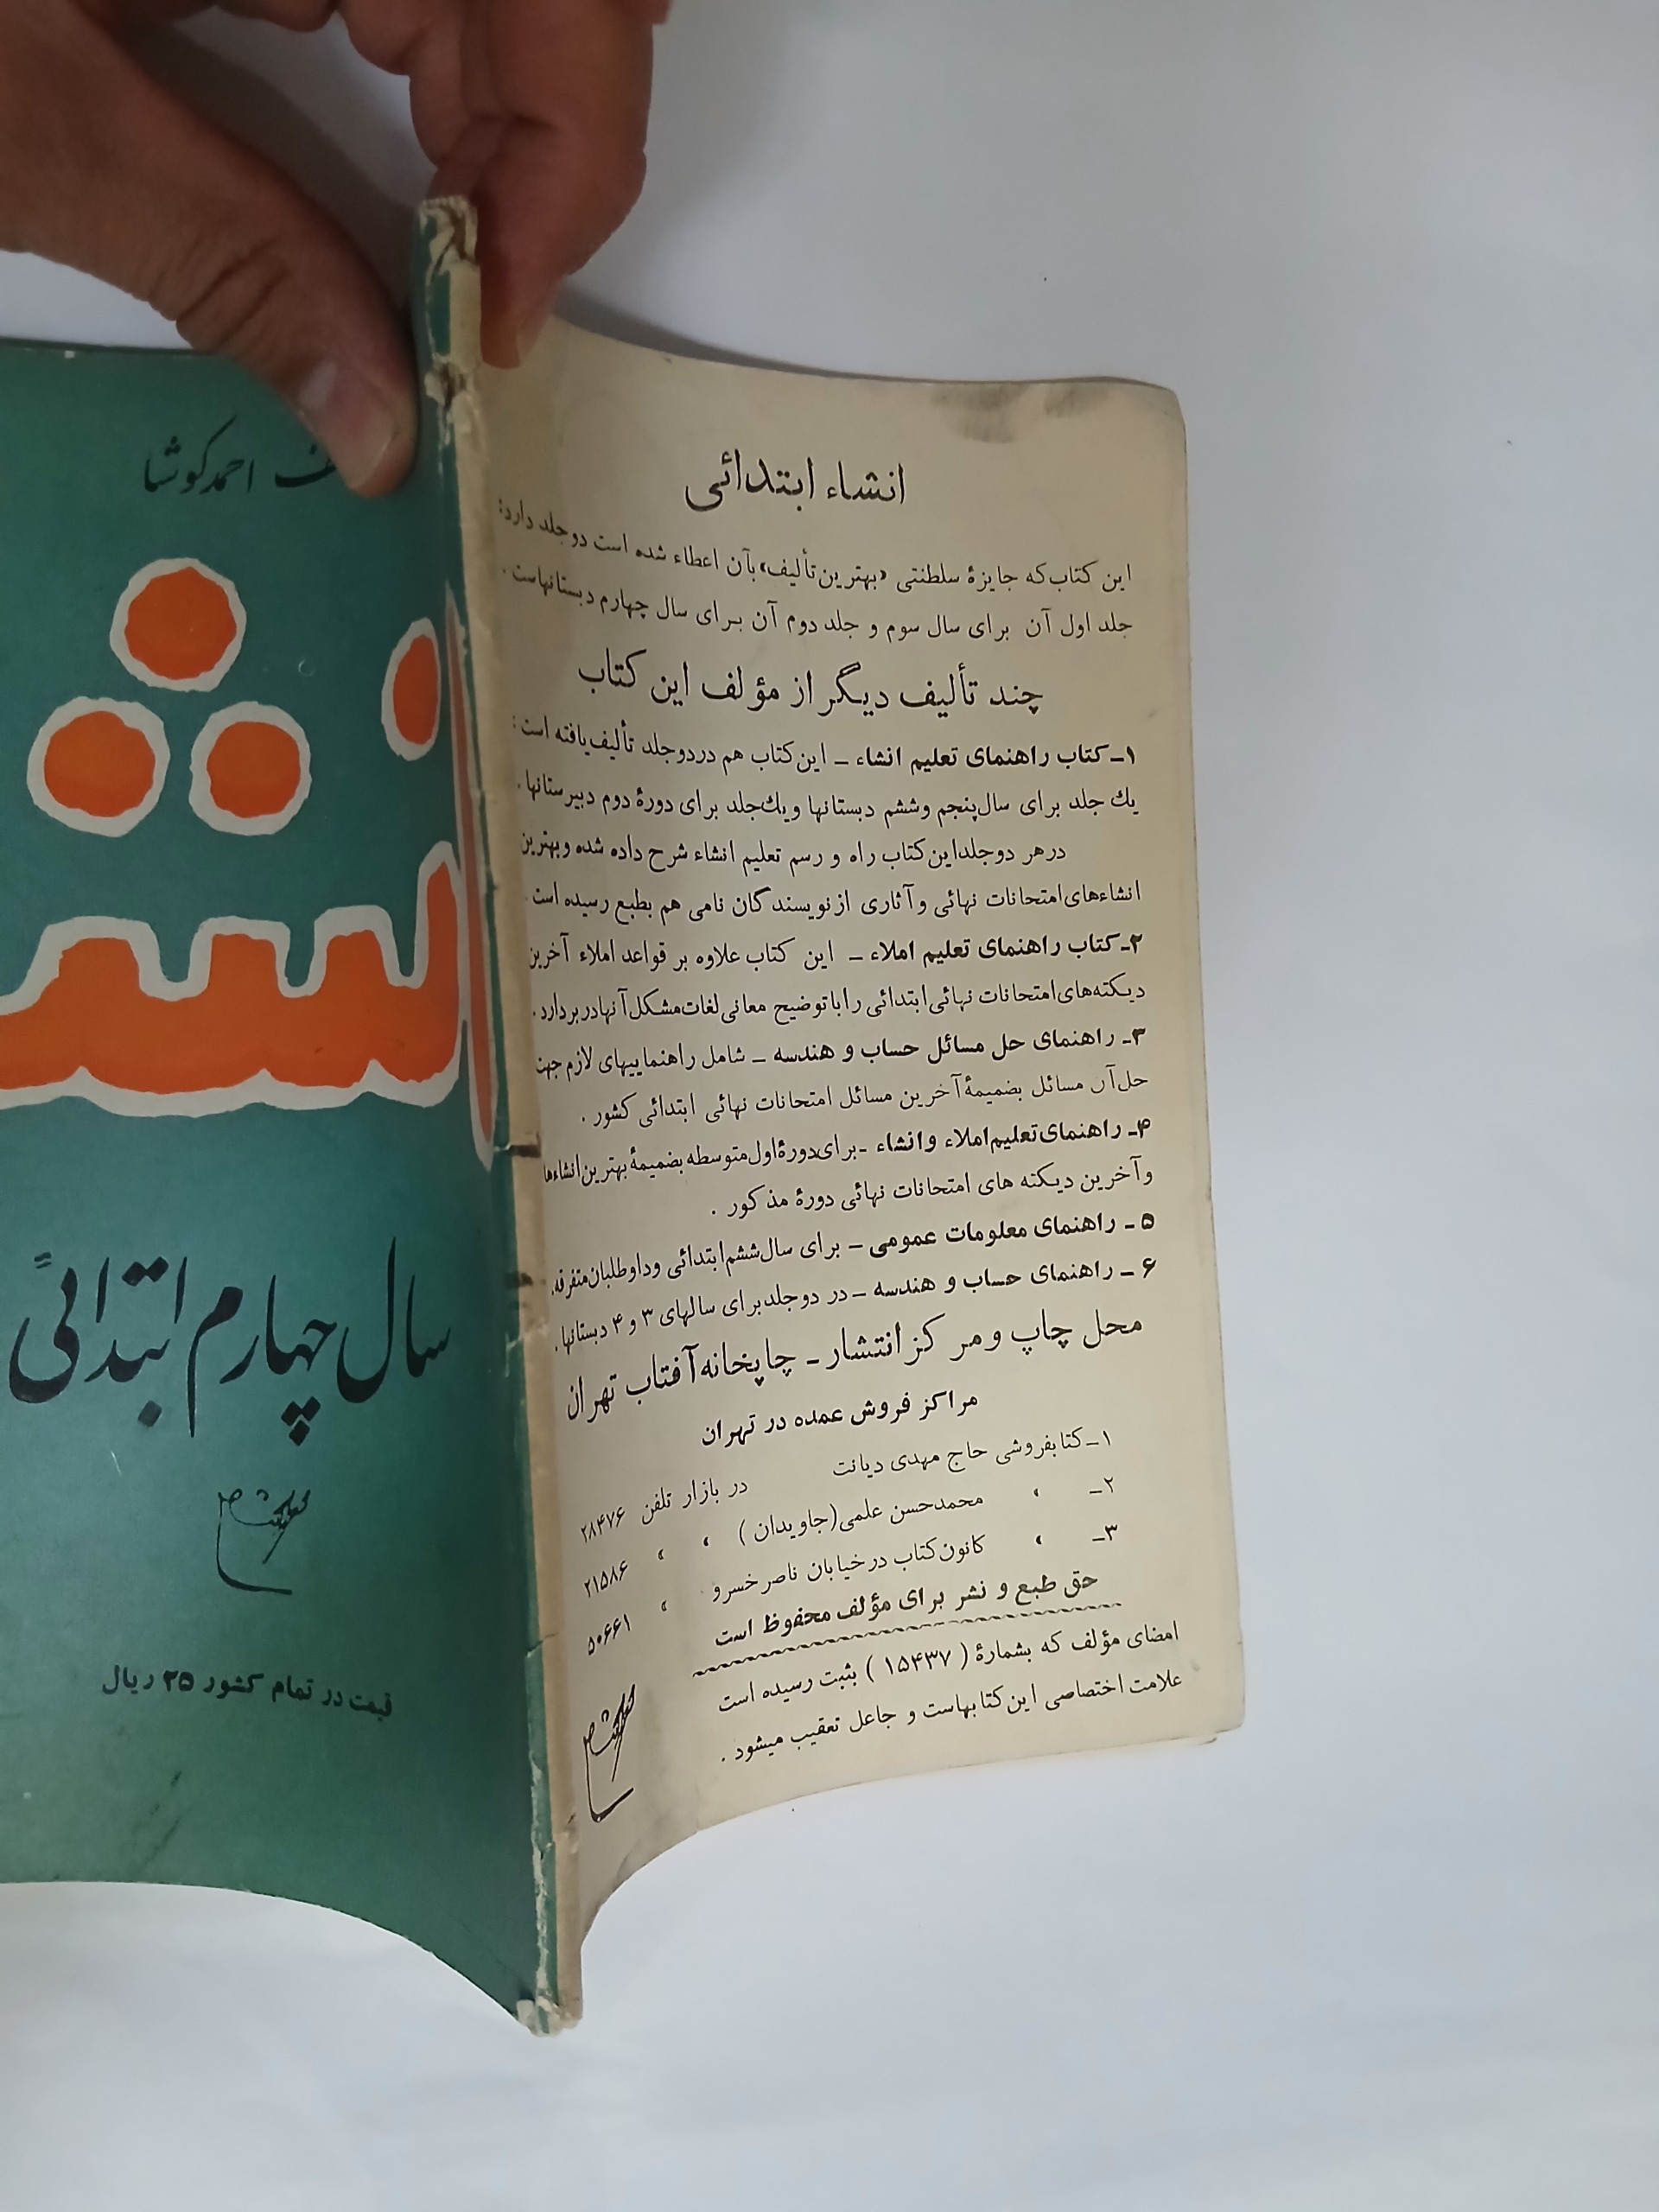 انشاء ابتدائی
این کتاب که جایزهٔ سلطنتی «بهترین تألیف» بآن اعطاء شده است دوجلد دارد:
جلد اول آن برای سال سوم و جلد دوم آن برای سال چهارم دبستانهاست.
چند تألیف دیگر از مؤلف این کتاب
۱ـ کتاب راهنمای تعلیم انشاء ـ این کتاب هم در دوجلد تألیف یافته است:
یك جلد برای سال پنجم وششم دبستانها ویك جلد برای دورهٔ دوم دبیرستانها.
درهر دوجلداین کتاب راه و رسم تعلیم انشاء شرح داده شده وبهترین
انشاءهای امتحانات نهائی وآثاری ازنویسندگان نامی هم بطبع رسیده است.
۲ـ کتاب راهنمای تعلیم املاء ـ این کتاب علاوه بر قواعد املاء آخرین
دیکته‌های امتحانات نهائی ابتدائی را با توضیح معانی لغات مشکل آنها دربردارد.
۳ـ راهنمای حل مسائل حساب و هندسه ـ شامل راهنماییهای لازم جهت
حل آن مسائل بضمیمهٔ آخرین مسائل امتحانات نهائی ابتدائی کشور.
۴ـ راهنمای تعلیم املاء وانشاء ـ برای دورهٔ اول متوسطه بضمیمهٔ بهترین انشاءها
وآخرین دیکته های امتحانات نهائی دورهٔ مذکور.
۵ ـ راهنمای معلومات عمومی ـ برای سال ششم ابتدائی وداوطلبان متفرقه.
۶ ـ راهنمای حساب و هندسه ـ در دوجلد برای سالهای ۳ و ۴ دبستانها.
محل چاپ و مرکز انتشار ـ چاپخانه آفتاب تهران
مراکز فروش عمده در تهران
۱ـ کتابفروشی حاج مهدی دیانت در بازار تلفن ۲۸۴۷۶
۲ـ » محمدحسن علمی (جاویدان) » » ۲۱۵۸۶
۳ـ » کانون کتاب در خیابان ناصرخسرو » ۵۰۶۶۱
حق طبع و نشر برای مؤلف محفوظ است
امضای مؤلف که بشمارهٔ (۱۵۴۳۷) بثبت رسیده است
علامت اختصاصی این کتابهاست و جاعل تعقیب میشود.
احمد کوشا
سال چهارم ابتدائی
قیمت در تمام کشور ۲۵ ریال